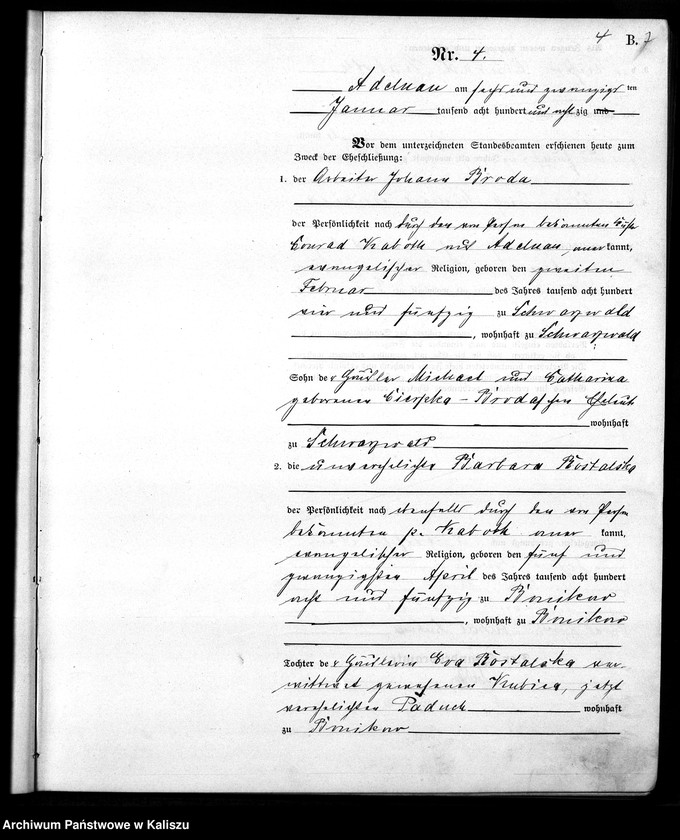 4 B. 7
Nr. 4.
Adelnau am sechs und zwanzigsten
Januar tausend acht hundert und achtzig und
Vor dem unterzeichneten Standesbeamten erschienen heute zum
Zweck der Eheschließung:
1. der Arbeiter Johann Broda
der Persönlichkeit nach durch den von Person bekannten
Conrad Kaboth aus Adelnau anerkannt,
evangelischer Religion, geboren den zweiten
Februar des Jahres tausend acht hundert
vier und fünfzig zu Schwarzwald
, wohnhaft zu Schwarzwald
Sohn der Häusler Michael und Catharina
geborenen Broda'schen Eheleute
wohnhaft
zu Schwarzwald
2. die unverehelichte Barbara Rostalska
der Persönlichkeit nach ebenfalls durch den von Person
bekannten p. Kaboth anerkannt,
evangelischer Religion, geboren den fünf und
zwanzigsten April des Jahres tausend acht hundert
acht und fünfzig zu Bonikow
, wohnhaft zu Bonikow
Tochter der Häuslerin Eva Rostalska ver-
wittwet gewesenen Kubica, jetzt
verehelichten Paduch wohnhaft
zu Bonikow
Archiwum Państwowe w Kaliszu